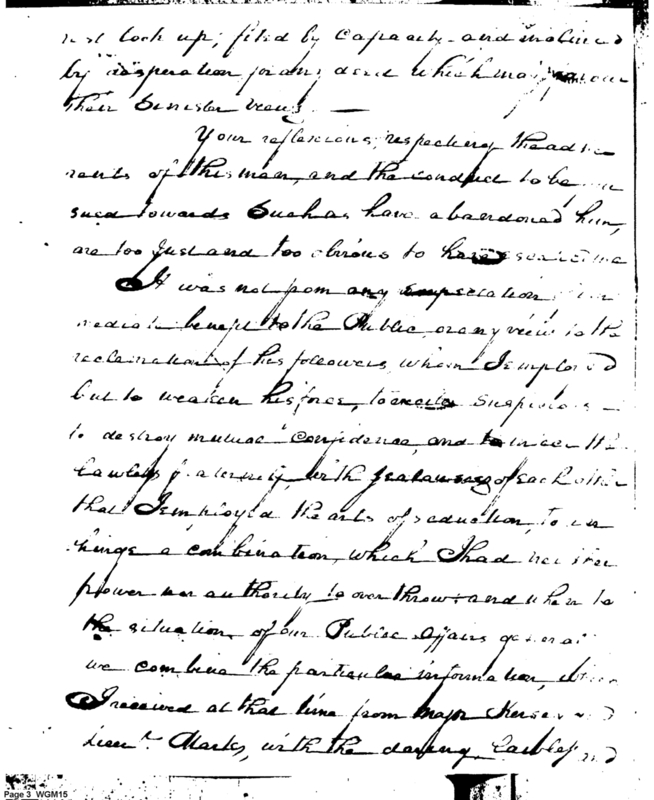 look up; fited by capacity and inclined
by desperation for any deed which may
their Sinister views —
Your reflexions, respecting the adhe
rents of this man, and the conduct to be
sued towards Such as have abandoned him,
are too just and too obvious to have
It was not from any expectation
mediate benefit to the Public, or any view to the
reclamation of his followers, whom I employed
but to weaken his force, to excite Suspicions
to destroy mutual confidence, and to the
Lawless fraternity, with Jealousies of each other
that I employed the arts of seduction, to un
hinge a combination, which I had neither
power nor authority to overthrow: and when to
the situation of our Public Affairs general
we combine the particular information, which
I received at that time from Major Kersey and
Lieut. Marks, with the daring, Lawless and
Page 3 WGM15